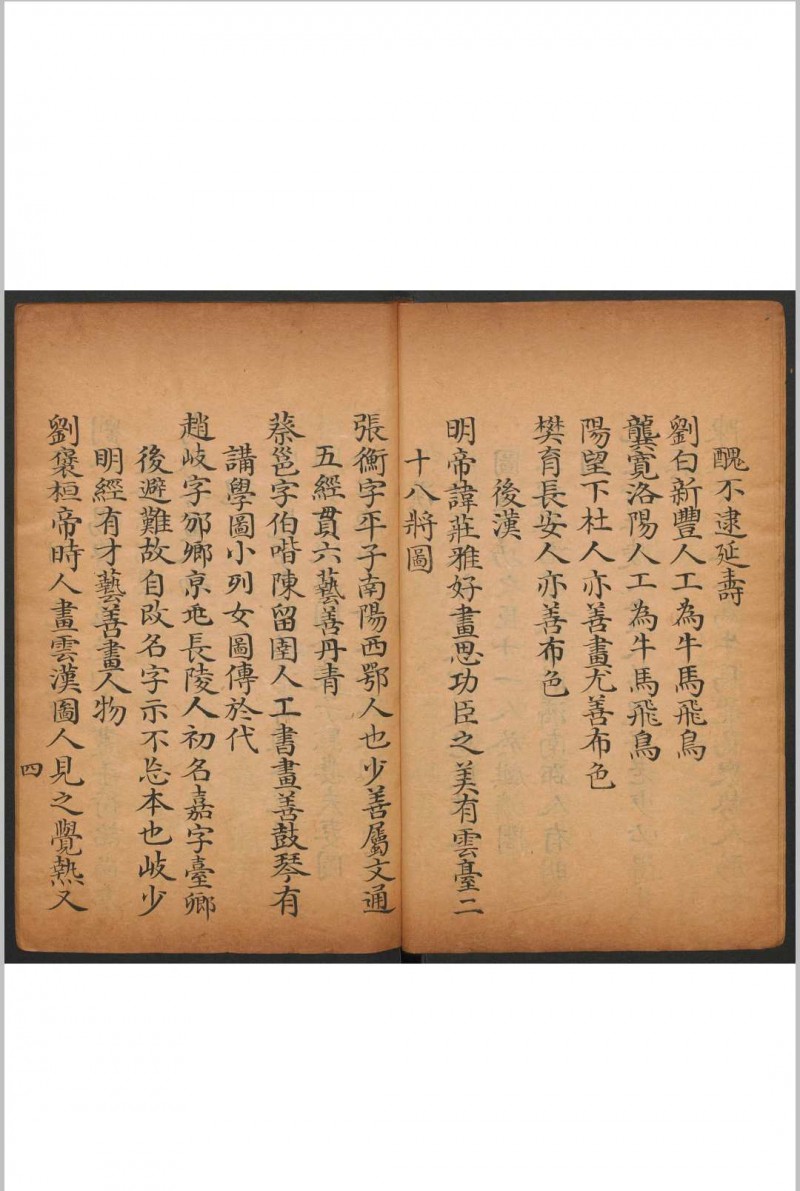 醜不逮延壽
劉白新豐人工為牛馬飛鳥
龔寛洛陽人工為牛馬飛鳥
陽望下杜人亦善畫尤善布色
樊育長安人亦善布色
後漢
明帝諱莊雅好畫思功臣之美有雲臺二
十八將圖
張衡字平子南陽西鄂人也少善屬文通
五經貫六藝善丹青
蔡邕字伯喈陳留圉人工書畫善鼓琴有
講學圖小列女圖傳於代
趙岐字邠鄉京兆長陵人初名嘉字臺卿
後避難故自改名字示不忘本也岐少
明經有才藝善畫人物
劉褒桓帝時人畫雲漢圖人見之覺熱又
四